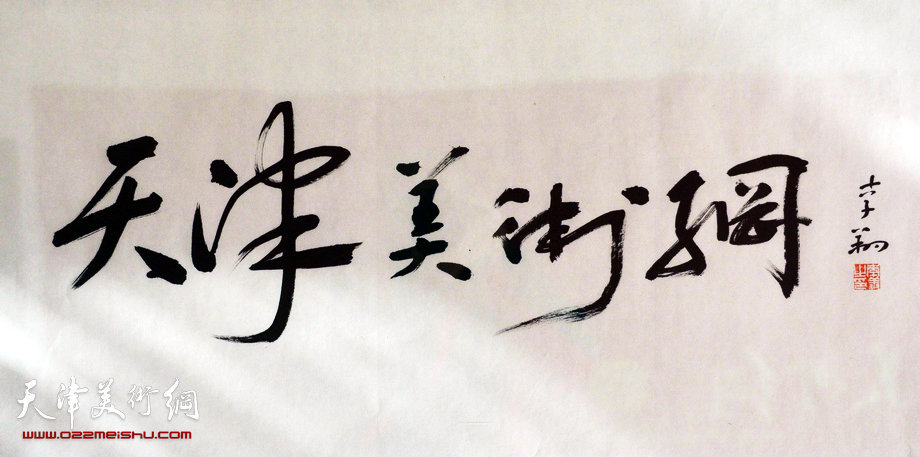 天津美術網
天津美術網
www.022meishu.com